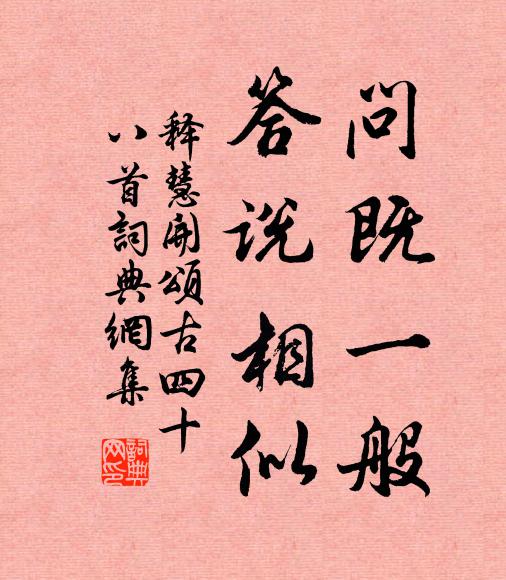 问既一般
答说相似
释慧开颂古四十
八首詞典網集
詞典网印